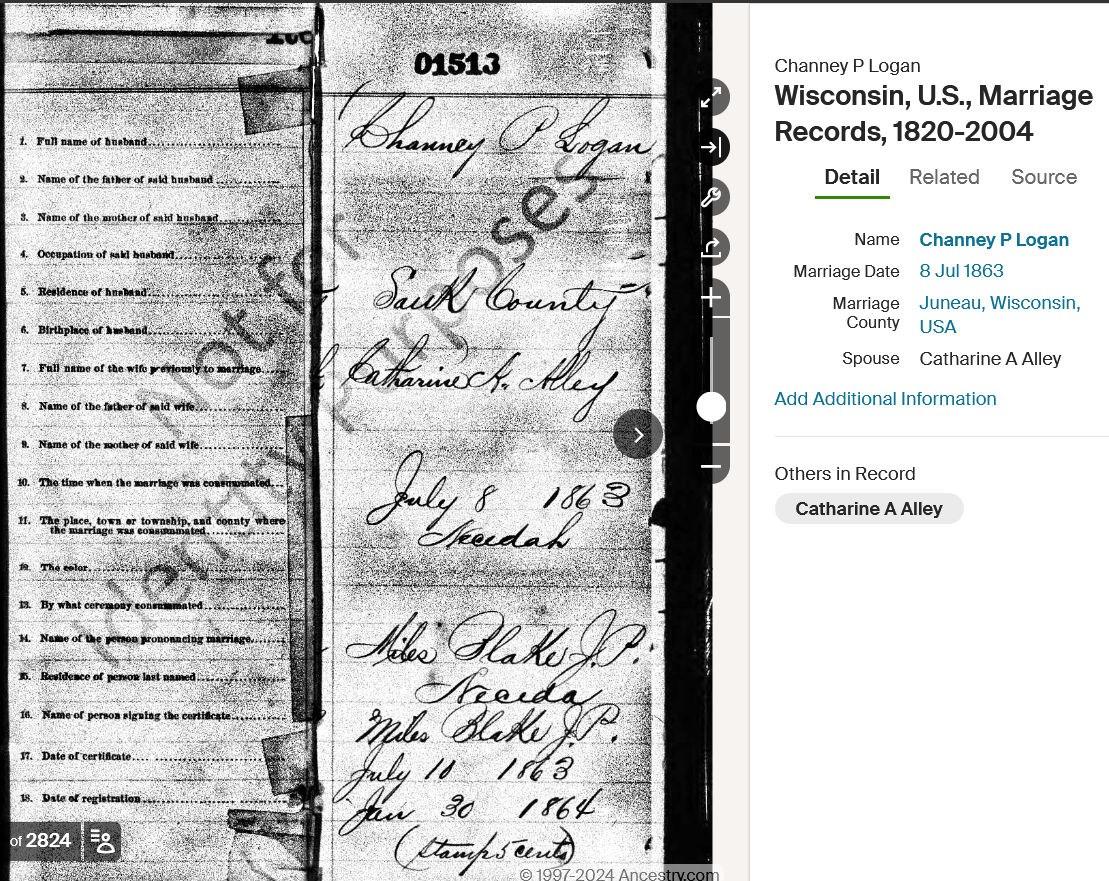 01513
1. Full name of husband
Channey P Logan
2. Name of the father of said husband
3. Name of the mother of said husband
4. Occupation of said husband
5. Residence of husband
Sauk County
6. Birthplace of husband
7. Full name of the wife previously to marriage
Catharine A. Alley
8. Name of the father of said wife
9. Name of the mother of said wife
10. The time when the marriage was consummated
July 8 1863
11. The place, town or township, and county where
the marriage was consummated
Necedah
12. The color
13. By what ceremony consummated
14. Name of the person pronouncing marriage
Miles Blake J.P.
15. Residence of person last named
Neceda
16. Name of person signing the certificate
Miles Blake J.P.
17. Date of certificate
July 10 1863
18. Date of registration
Jan 30 1864
(Stamp 5 cents)
Not for
Identity Purposes
of 2824
© 1997-2024 Ancestry.com
Channey P Logan
Wisconsin, U.S., Marriage
Records, 1820-2004
Detail Related Source
Name Channey P Logan
Marriage Date 8 Jul 1863
Marriage County Juneau, Wisconsin,
USA
Spouse Catharine A Alley
Add Additional Information
Others in Record
Catharine A Alley